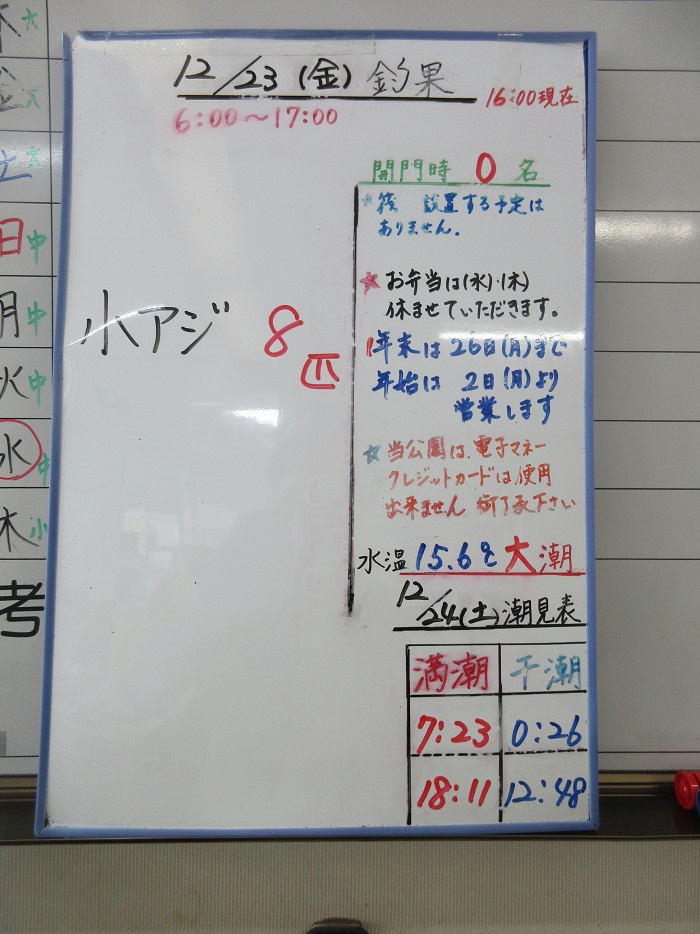 12/23(金)釣果
16:00現在
6:00〜17:00
小アジ 8匹
開門時 0 名
設置する予定は
ありません。
☆お弁当は(水)・(木)
休ませていただきます。
年末は26日(月)まで
年始は 2日(月)より
営業します
☆当公園は、電子マネー
クレジットカードは使用
出来ません 御了承下さい
水温 15.6℃ 大潮
12/24(土)潮見表
満潮 干潮
7:23 0:26
18:11 12:48
木 大
金 大
土
日 中
月 中
火 中
水 中
木 小
考